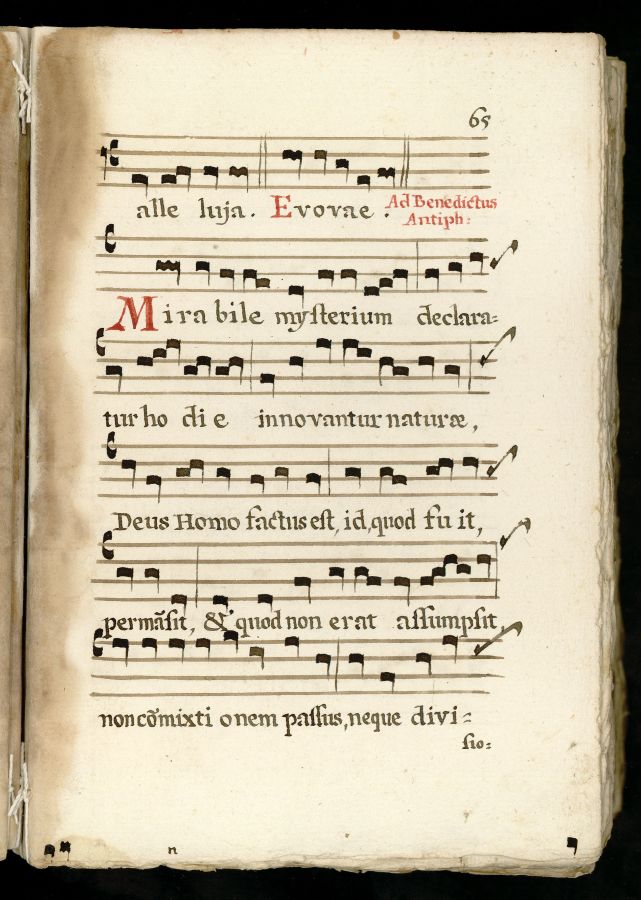 65
alle luja. Evovae. Ad Benedictus
Antiph:
Mirabile mysterium declara=
tur ho di e innovantur naturæ,
Deus Homo factus est, id, quod fu it,
permãsit, & quod non erat assumpsit,
non cõmixti onem passus, neque divi=
sio=
n